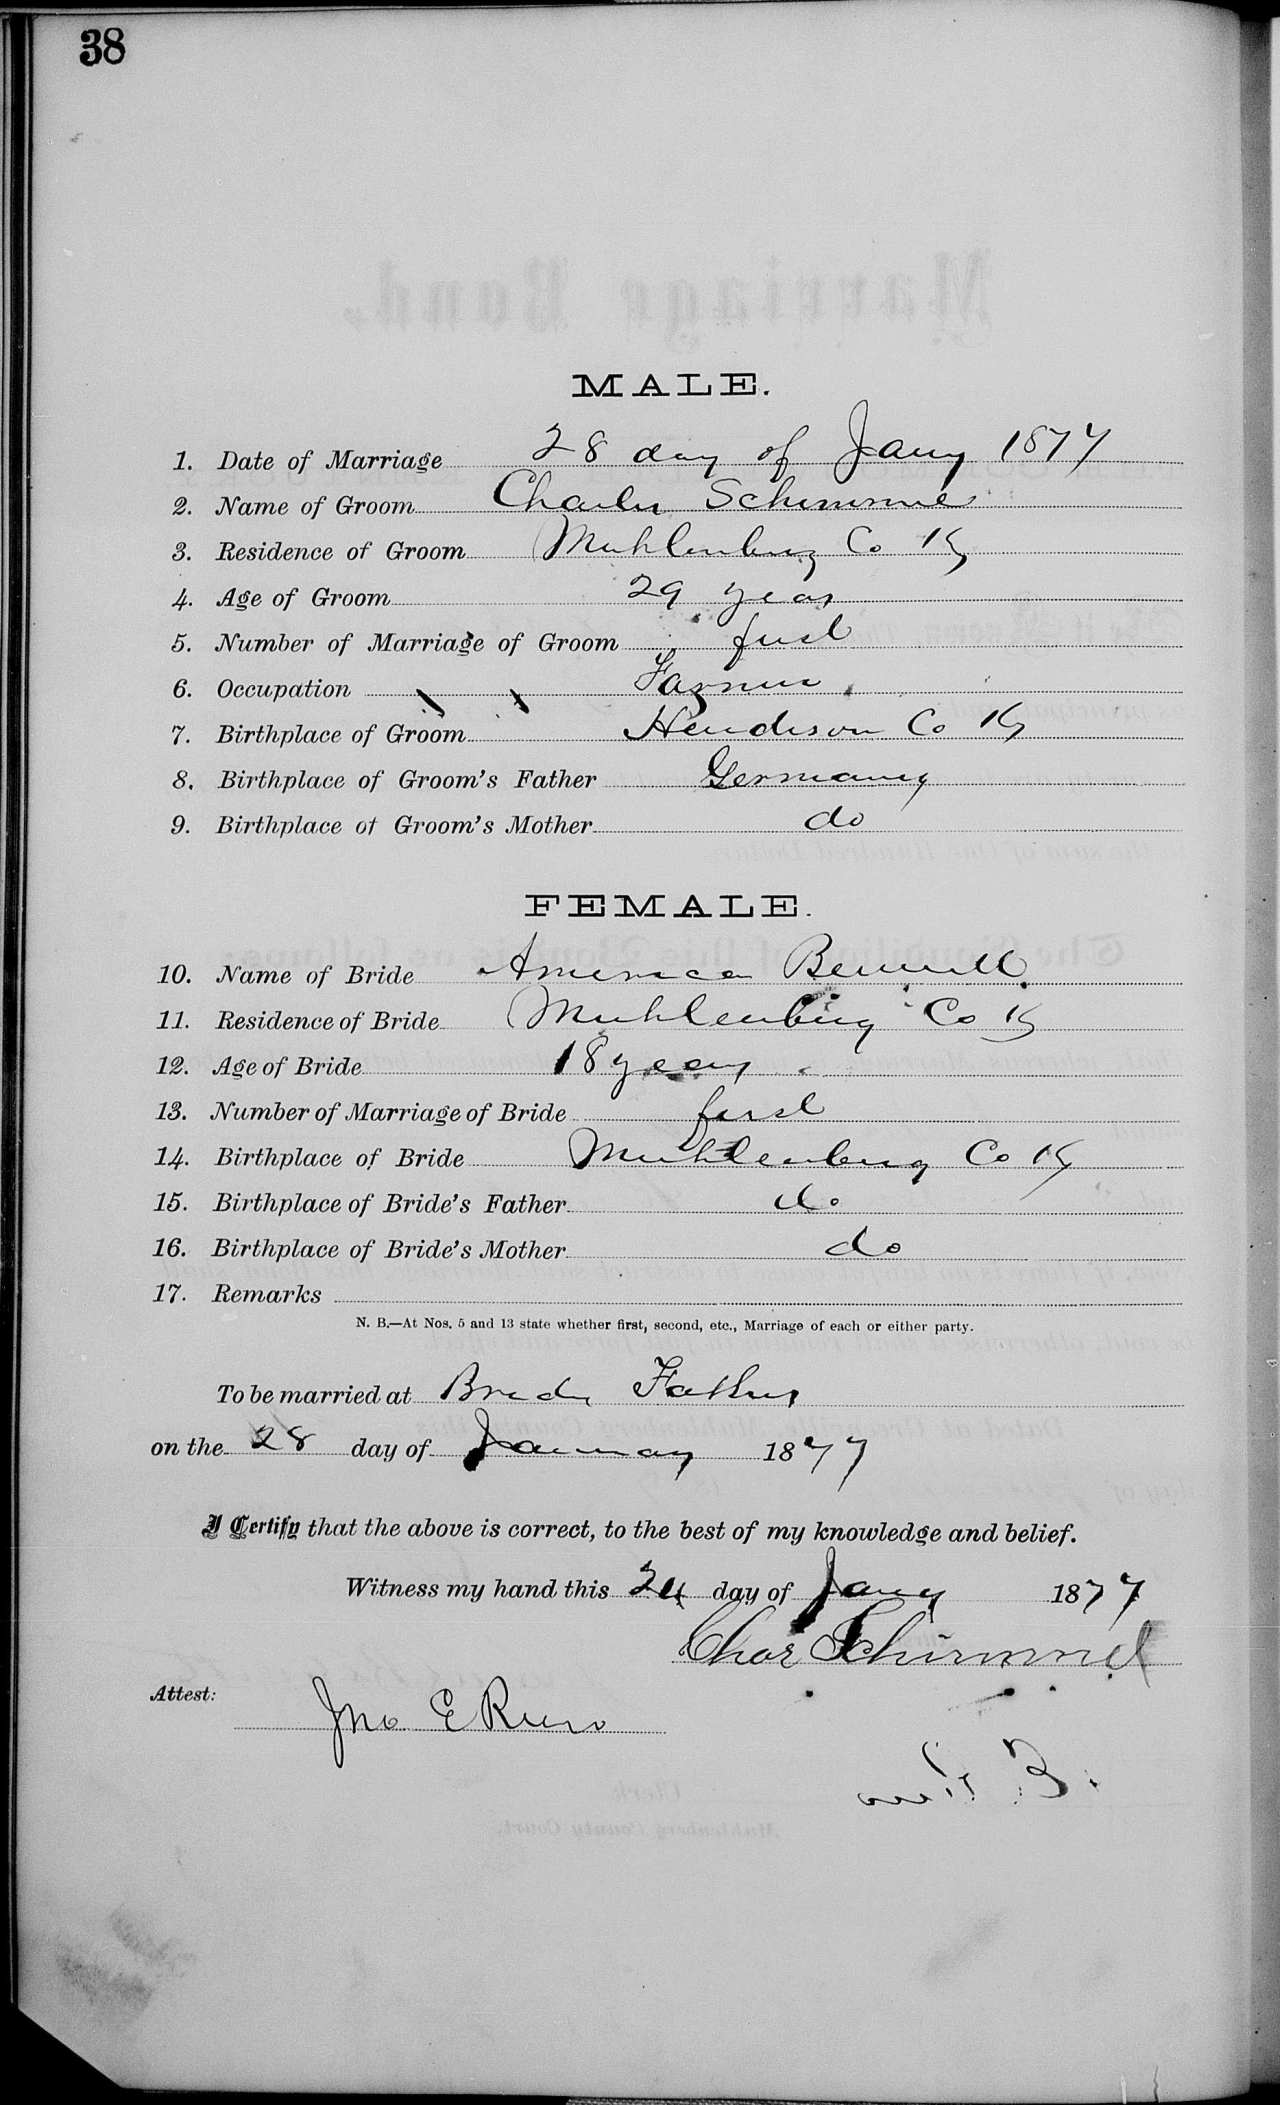 38
MALE.
1. Date of Marriage 28 day of Jany 1877
2. Name of Groom Charles Schimmel
3. Residence of Groom Muhlenberg Co Ky
4. Age of Groom 29 years
5. Number of Marriage of Groom first
6. Occupation Farmer
7. Birthplace of Groom Henderson Co Ky
8. Birthplace of Groom's Father Germany
9. Birthplace of Groom's Mother do
FEMALE.
10. Name of Bride America Bennett
11. Residence of Bride Muhlenberg Co Ky
12. Age of Bride 18 years
13. Number of Marriage of Bride first
14. Birthplace of Bride Muhlenberg Co Ky
15. Birthplace of Bride's Father do
16. Birthplace of Bride's Mother do
17. Remarks
N. B.—At Nos. 5 and 13 state whether first, second, etc., Marriage of each or either party.
To be married at Brides Fathers
on the 28 day of January 1877
I Certify that the above is correct, to the best of my knowledge and belief.
Witness my hand this 24 day of Jany 1877
Chas Schimmel
Attest:
Jno E Reno